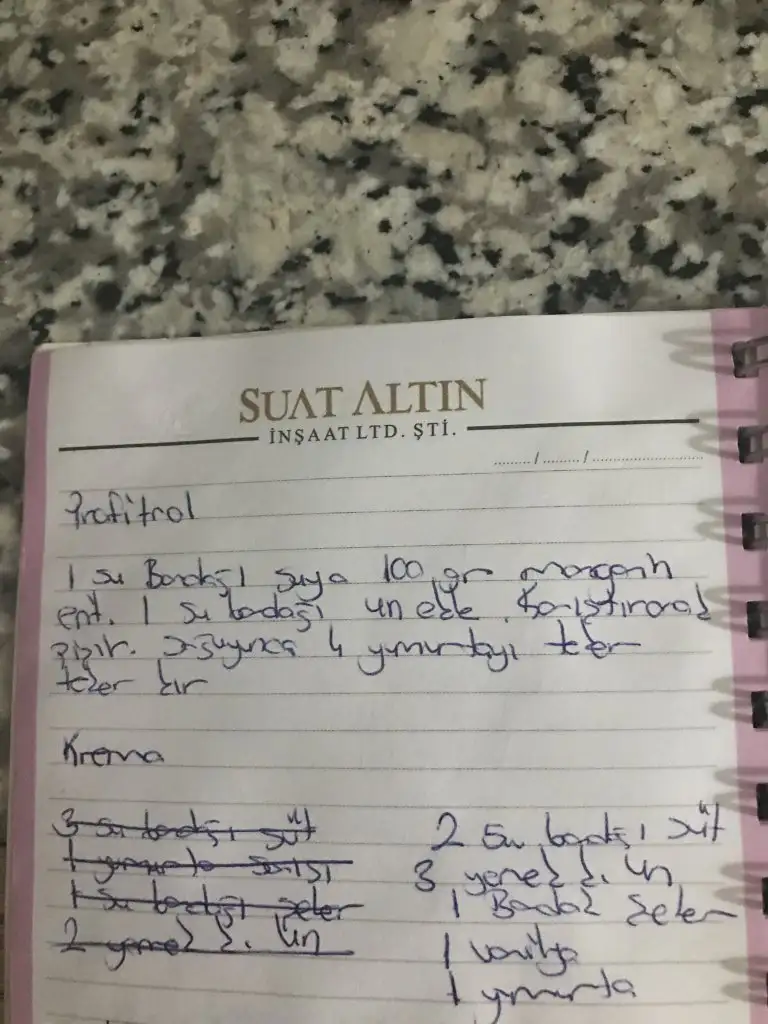 SUAT ALTIN
İNŞAAT LTD. ŞTİ.
......... / ......... / .........................
Profitrol
1 su Bardağı suya 100 gr margarin
erit. 1 su bardağı un ekle. Karıştırarak
pişir. Soğuyunca 4 yumurtayı teker
teker kır
Krema
3 su bardağı süt
1 yumurta sarısı
1 su bardağı şeker
2 yemek k. un
2 su bardağı süt
3 yemek k. un
1 Bardak şeker
1 vanilya
1 yumurta